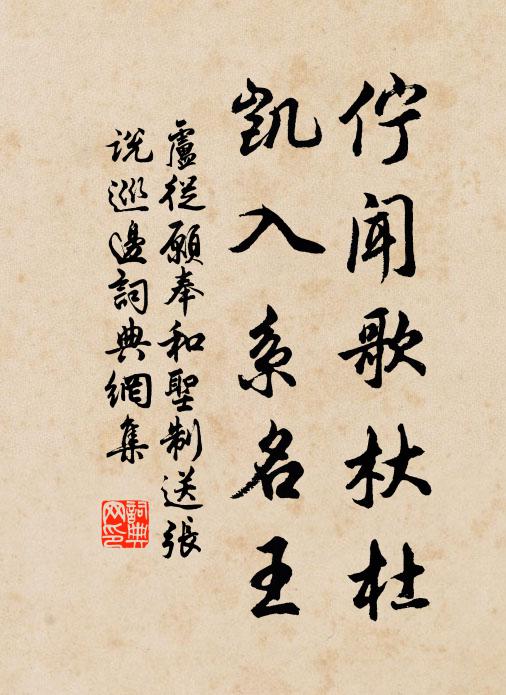 佇闻歌杕杜
凯入系名王
盧從願奉和聖制送張
说巡邊詞典網集
詞典
网印